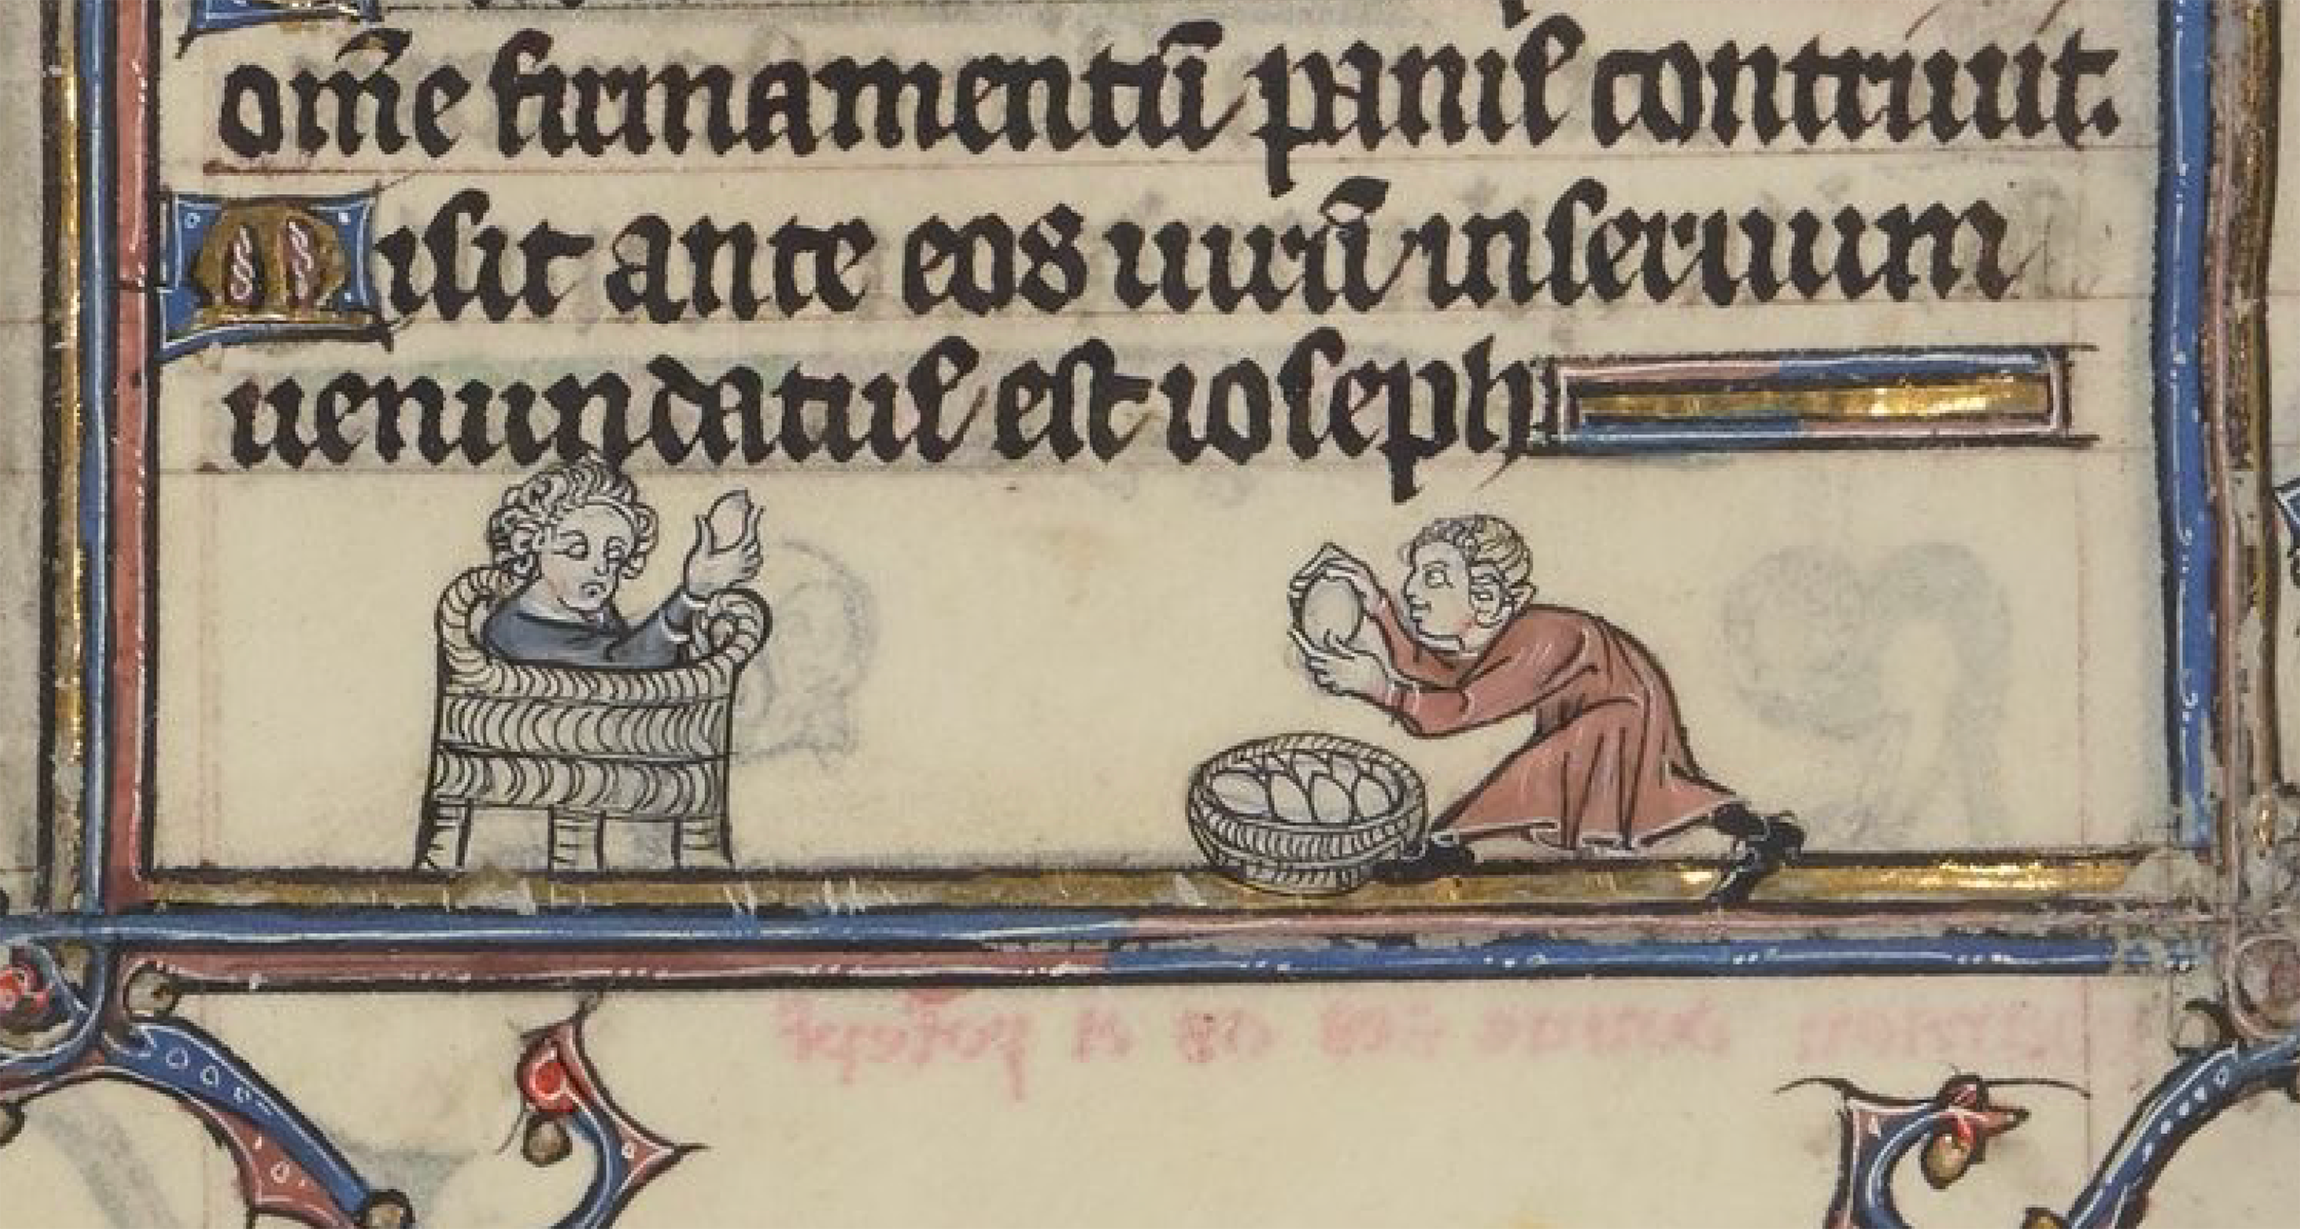 om̄e firmamentū panis contriuit.
Misit ante eos uirū in seruum
uenundatus est ioseph